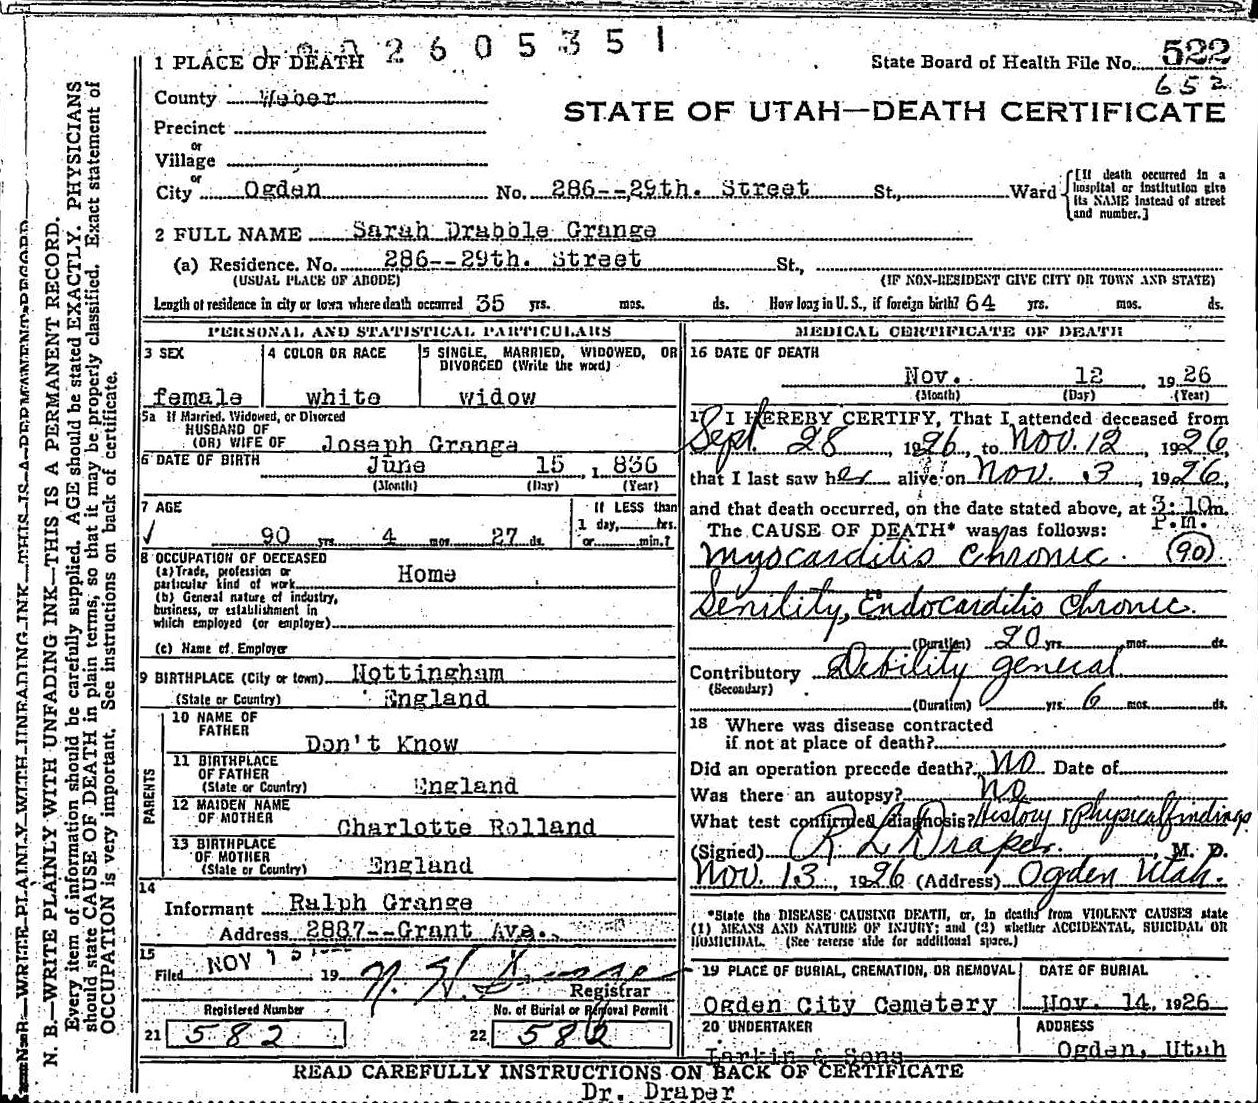 2605351
1 PLACE OF DEATH
State Board of Health File No. 522
652
County Weber
STATE OF UTAH—DEATH CERTIFICATE
Precinct
or
Village
or
City Ogden No. 286--29th. Street St., Ward
[If death occurred in a hospital or institution give its NAME instead of street and number.]
2 FULL NAME Sarah Drabble Grange
(a) Residence. No. 286--29th. Street St.,
(USUAL PLACE OF ABODE) (IF NON-RESIDENT GIVE CITY OR TOWN AND STATE)
Length of residence in city or town where death occurred 35 yrs. mos. ds. How long in U. S., if foreign birth? 64 yrs. mos. ds.
PERSONAL AND STATISTICAL PARTICULARS
3 SEX
female
4 COLOR OR RACE
white
5 SINGLE, MARRIED, WIDOWED, OR DIVORCED (Write the word)
widow
5a If Married, Widowed, or Divorced
HUSBAND OF
(OR) WIFE OF Joseph Grange
6 DATE OF BIRTH June 15, 1836
(Month) (Day) (Year)
7 AGE
90 yrs. 4 mos. 27 ds.
If LESS than
1 day, hrs.
or min.?
8 OCCUPATION OF DECEASED
(a) Trade, profession or
particular kind of work Home
(b) General nature of industry,
business, or establishment in
which employed (or employer)
(c) Name of Employer
9 BIRTHPLACE (City or town) Nottingham
(State or Country) England
PARENTS
10 NAME OF
FATHER
Don't Know
11 BIRTHPLACE
OF FATHER
(State or Country) England
12 MAIDEN NAME
OF MOTHER Charlotte Rolland
13 BIRTHPLACE
OF MOTHER
(State or Country) England
14
Informant Ralph Grange
Address 2887--Grant Ave.
15
Filed NOV 15 19
Registrar
Registered Number
21 582
No. of Burial or Removal Permit
22 582
MEDICAL CERTIFICATE OF DEATH
16 DATE OF DEATH
Nov. 12, 1926
(Month) (Day) (Year)
17 I HEREBY CERTIFY, That I attended deceased from
Sept 28, 1926, to Nov. 12, 1926,
that I last saw her alive on Nov. 3, 1926,
and that death occurred, on the date stated above, at 3:10m.
P.m.
The CAUSE OF DEATH* was as follows:
Myocarditis Chronic. (90)
Senility, Endocarditis Chronic.
(Duration) 20 yrs. mos. ds.
Contributory Debility general
(Secondary)
(Duration) yrs. 6 mos. ds.
18 Where was disease contracted
if not at place of death?
Did an operation precede death? No Date of
Was there an autopsy? No
What test confirmed diagnosis? History & Physical findings
(Signed) R L Draper, M. D.
Nov. 13, 1926 (Address) Ogden Utah.
*State the DISEASE CAUSING DEATH, or, in deaths from VIOLENT CAUSES state
(1) MEANS AND NATURE OF INJURY; and (2) whether ACCIDENTAL, SUICIDAL OR
HOMICIDAL. (See reverse side for additional space.)
19 PLACE OF BURIAL, CREMATION, OR REMOVAL
Ogden City Cemetery
DATE OF BURIAL
Nov. 14, 1926
20 UNDERTAKER
Larkin & Sons
ADDRESS
Ogden, Utah
READ CAREFULLY INSTRUCTIONS ON BACK OF CERTIFICATE
Dr. Draper
N. B.—WRITE PLAINLY WITH UNFADING INK—THIS IS A PERMANENT RECORD.
Every item of information should be carefully supplied. AGE should be stated EXACTLY. PHYSICIANS
should state CAUSE OF DEATH in plain terms, so that it may be properly classified. Exact statement of
OCCUPATION is very important. See instructions on back of certificate.